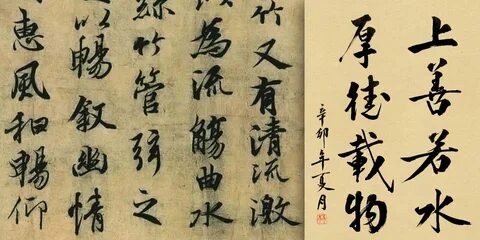 上善若水
厚德載物
辛卯年夏月
竹又有清流激
以為流觴曲水
絲竹管弦之
以暢敘幽情
惠風和暢仰